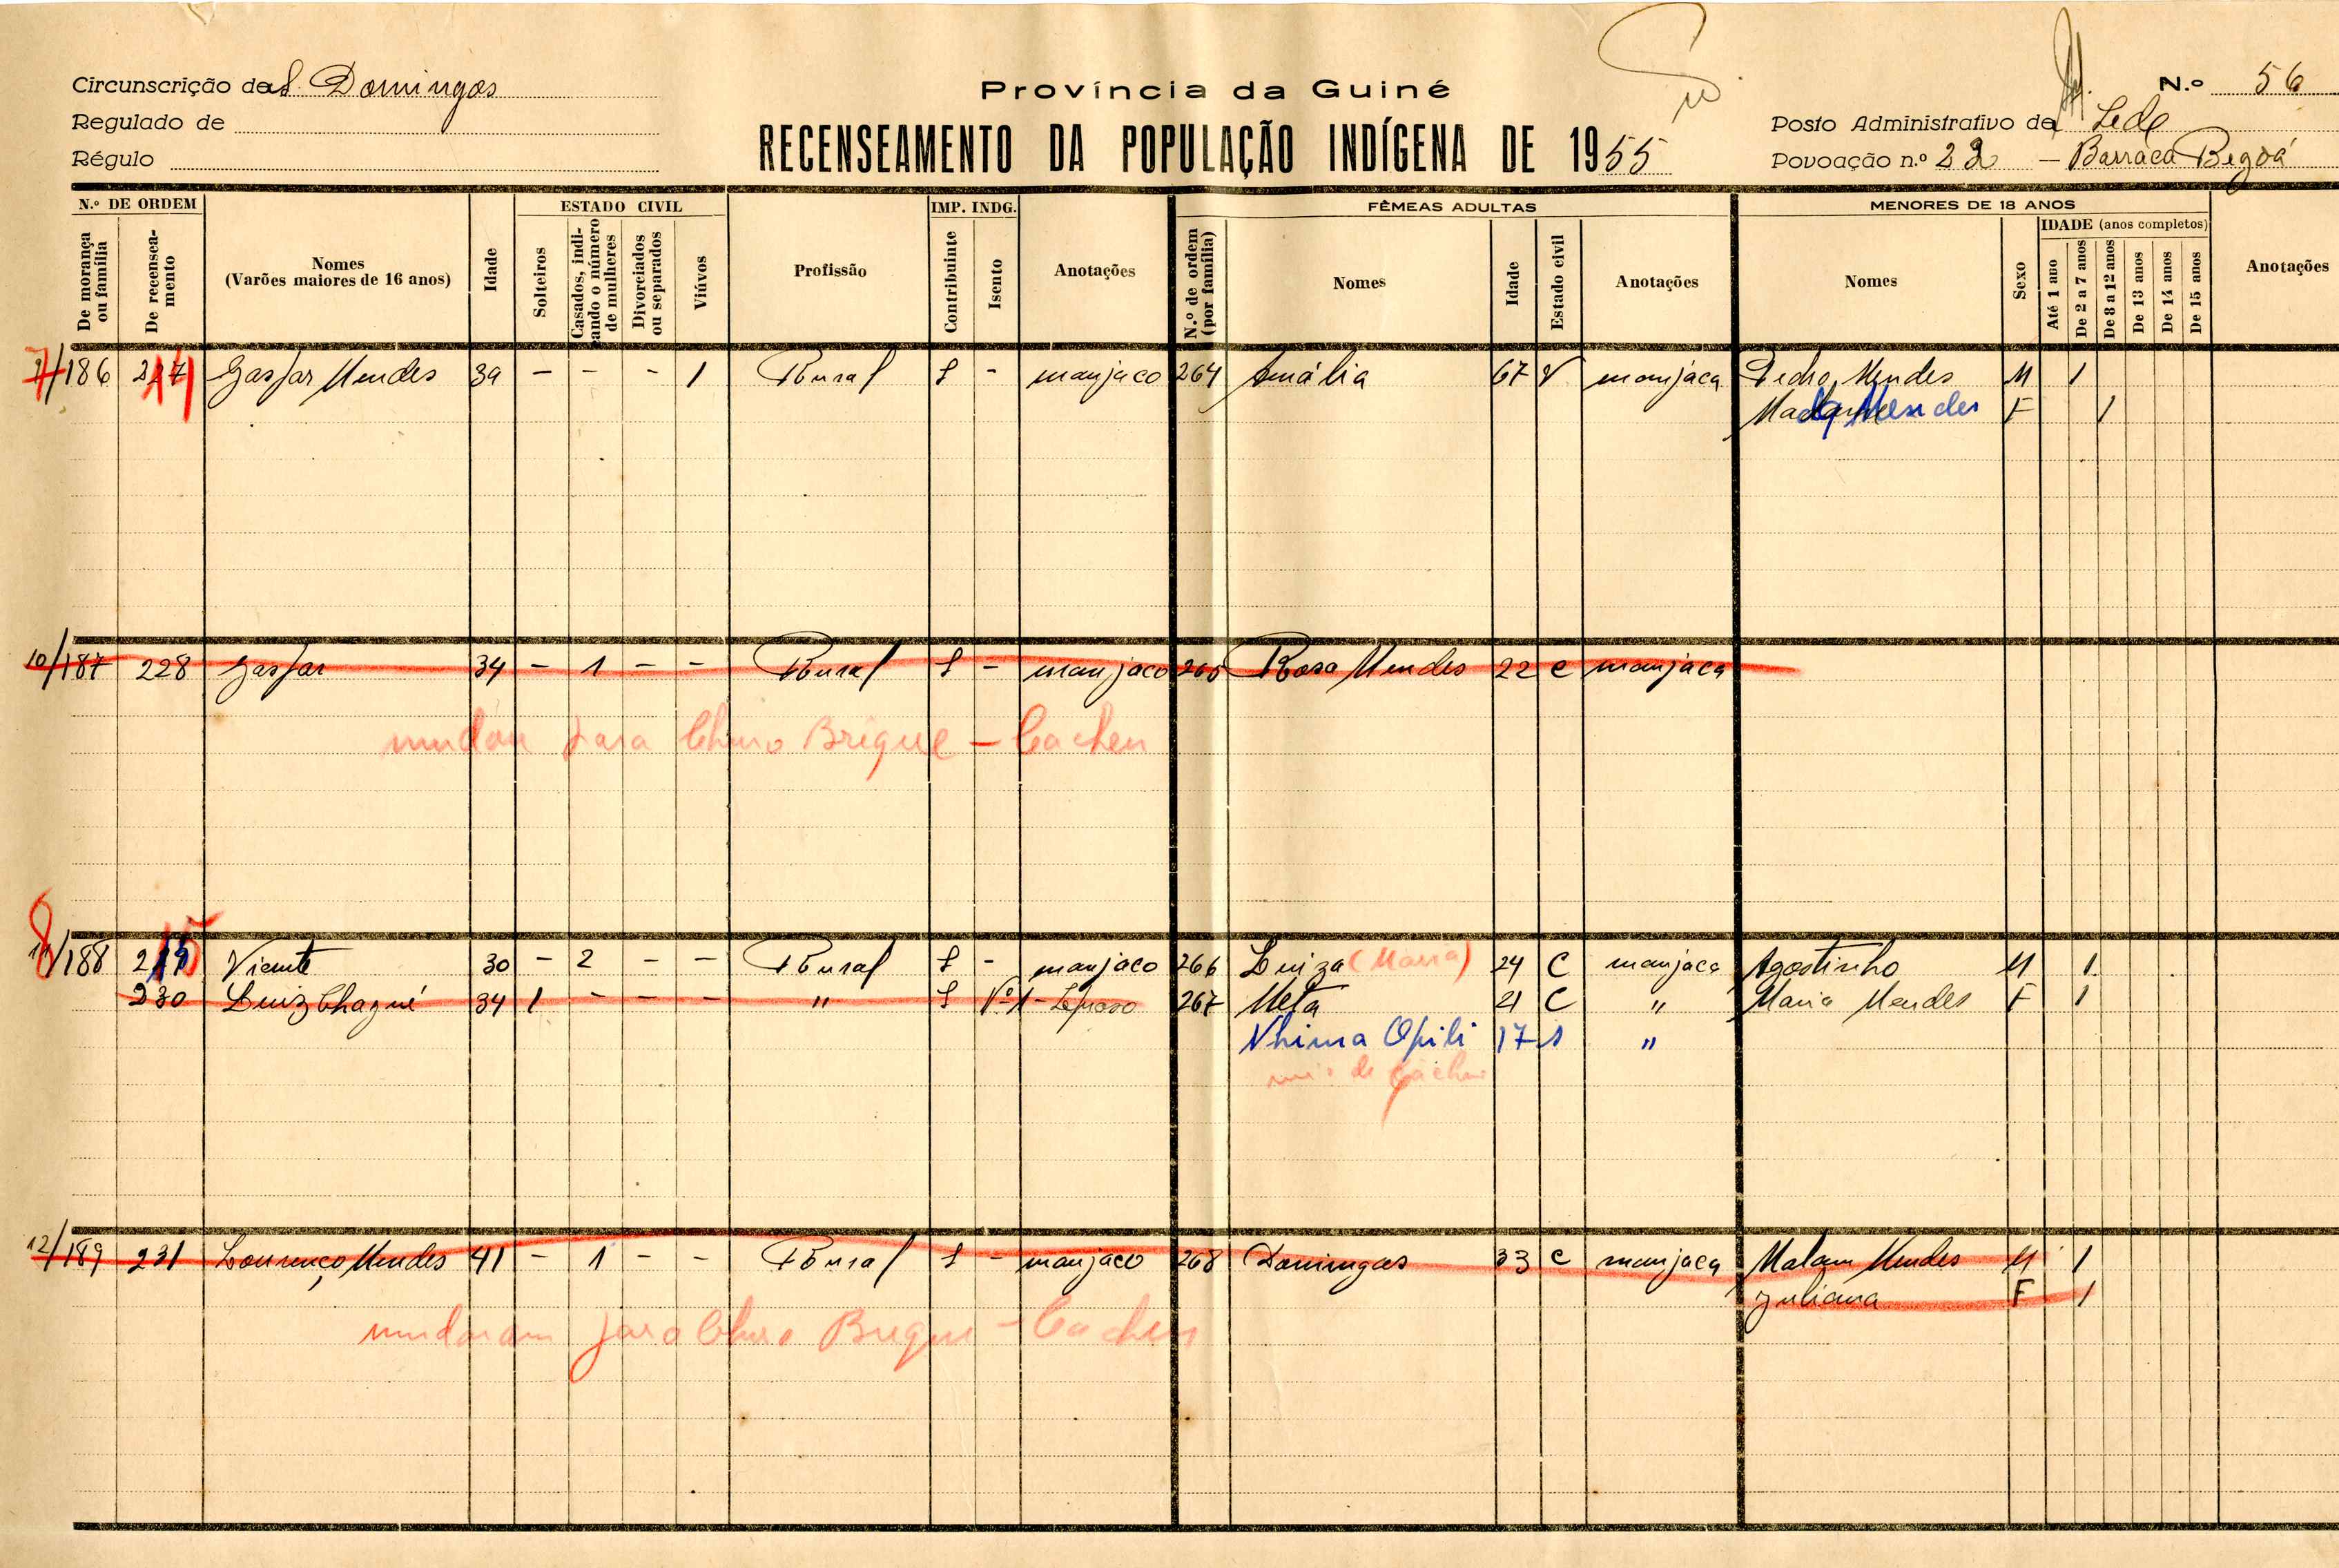 Circunscrição de S. Domingos
Regulado de
Régulo
Província da Guiné
RECENSEAMENTO DA POPULAÇÃO INDÍGENA DE 1955
N.º 56
Posto Administrativo de Sede
Povoação n.º 22 — Barraca Begoá
N.º DE ORDEM
De morança ou família
De recenseamento
Nomes
(Varões maiores de 16 anos)
Idade
ESTADO CIVIL
Solteiros
Casados, indicando o número de mulheres
Divorciados ou separados
Viúvos
Profissão
IMP. INDG.
Contribuinte
Isento
Anotações
FÊMEAS ADULTAS
N.º de ordem (por família)
Nomes
Idade
Estado civil
Anotações
MENORES DE 18 ANOS
Nomes
Sexo
IDADE (anos completos)
Até 1 ano
De 2 a 7 anos
De 8 a 12 anos
De 13 anos
De 14 anos
De 15 anos
Anotações
7/186 Gaspar Mendes 39 - - - 1 Rural S - manjaco 264 Amália 67 V manjaca Pedro Mendes M 1
Mendes F 1
10/187 228 Gaspar 34 - 1 - - Rural S - manjaco 265 Rosa Mendes 22 C manjaca
mudou para Churo Brique - Cacheu
8/188 Vicente 30 - 2 - - Rural S - manjaco 266 Luiza (Maria) 24 C manjaca Agostinho M 1
230 Luiz Chagué 34 1 - - - " S Nº 1 - Leproso 267 Meta 21 C " Maria Mendes F 1
Nhima Opili 17 s "
de Cacheu
12/189 231 Lourenço Mendes 41 - 1 - - Rural S - manjaco 268 Domingas 33 C manjaca Malam Mendes M 1
Juliana F 1
mudaram para Churo Brique - Cacheu